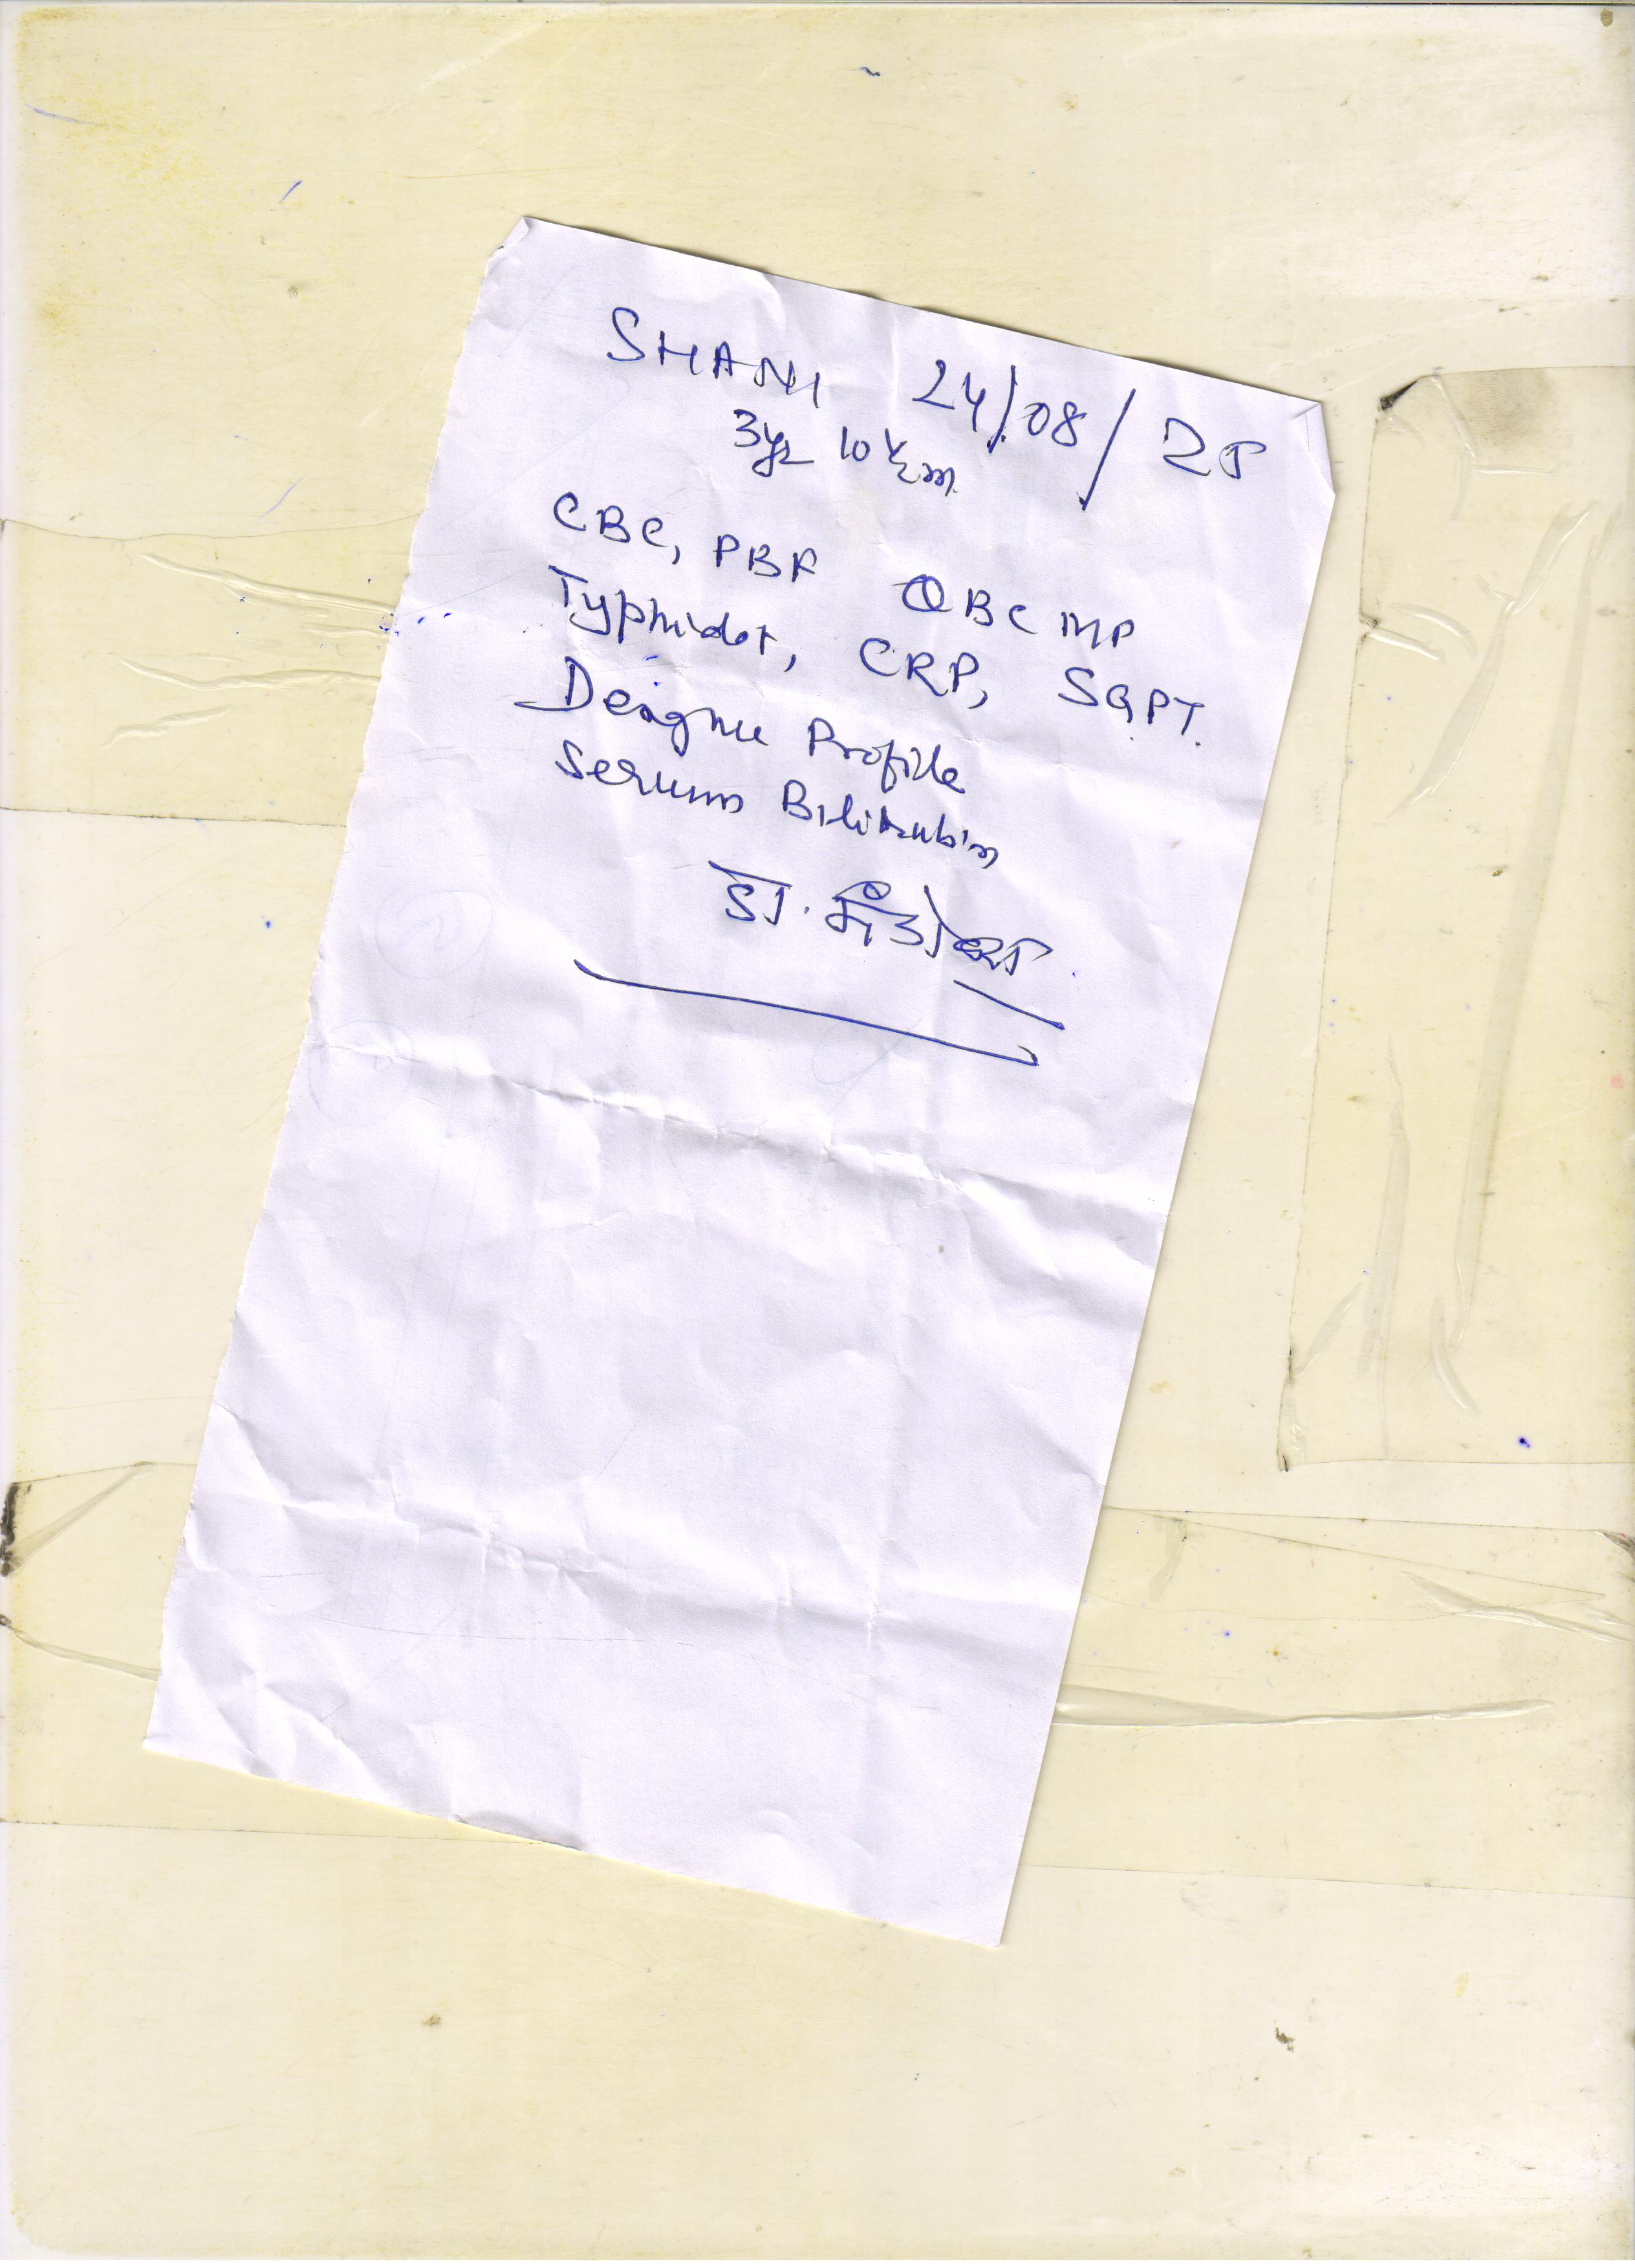 SHANI 24/08/25
3yr 10½m
CBC, PBF QBC MP
Typhidot, CRP, SGPT.
Dengue Profile
Serum Bilirubin
डा.